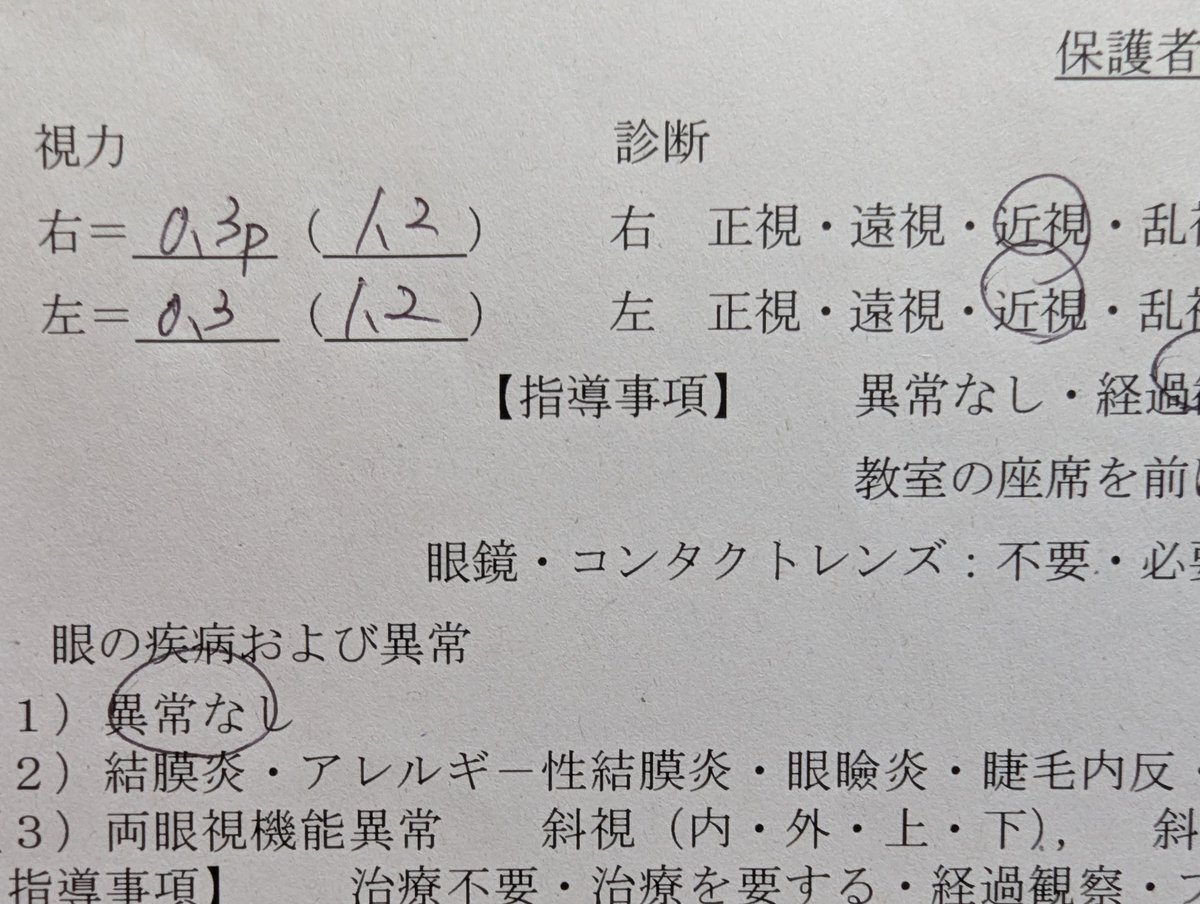 保護者
視力 診断
右＝ 0.3p ( 1.2 ) 右 正視・遠視・近視・乱
左＝ 0.3 ( 1.2 ) 左 正視・遠視・近視・乱
【指導事項】 異常なし・経過
教室の座席を前
眼鏡・コンタクトレンズ：不要・必
眼の疾病および異常
1）異常なし
2）結膜炎・アレルギ－性結膜炎・眼瞼炎・睫毛内反・
3）両眼視機能異常 斜視（内・外・上・下）， 斜
指導事項】 治療不要・治療を要する・経過観察・